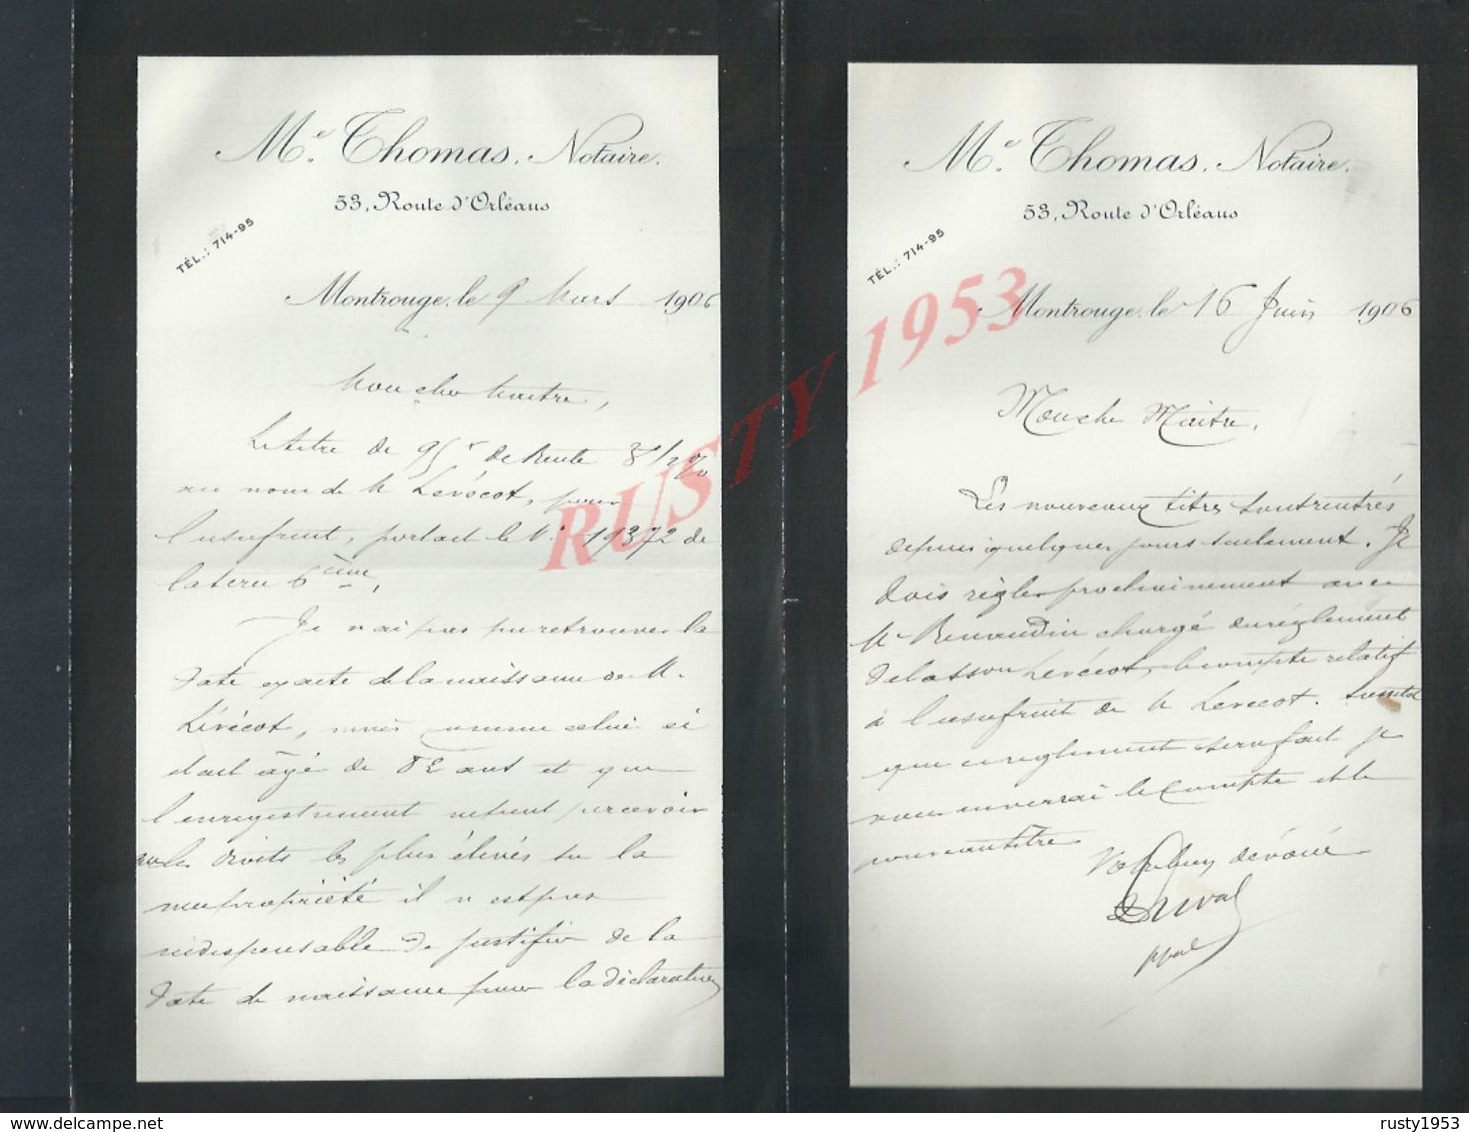 Me. Thomas, Notaire.
53, Route d'Orléans
TÉL.: 714-95
Montrouge, le 9 Mars 1906
Mon cher Maitre,
Le titre de 95 f de Rente 3 %
au nom de M Lévécot, pour
l'usufruit, portait le N. 19372 de
la serie 6 ème,
Je n'ai pas pu retrouver la
date exacte de la naissance de M.
Lévécot, mais comme celui ci
etait âgé de 82 ans et que
l'enregistrement percevoir
les droits les plus élevés sur la
nue propriété il n'est pas
indispensable de justifier de la
date de naissance pour la déclaration
Me. Thomas, Notaire.
53, Route d'Orléans
TÉL.: 714-95
Montrouge, le 16 Juin 1906
Mon cher Maitre,
Les nouveaux titres sont rentrés
depuis quelques jours seulement. Je
dois régler prochainement avec
Me Renaudin chargé du règlement
de la son Lévécot, le compte relatif
à l'usufruit de M Levecot.
que ce règlement sera fait je
vous enverrai le compte et le
nouveau titre
Votre bien dévoué
Duval
ppal
RUSTY 1953
delcampe.net
rusty1953